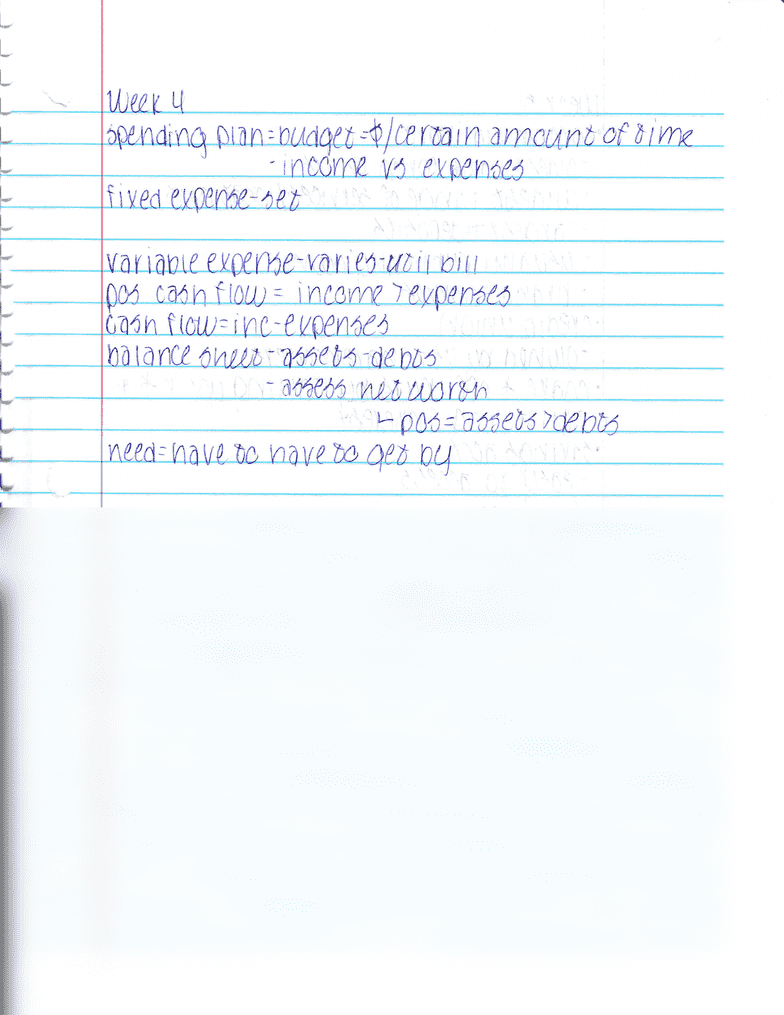 Week 4
spending plan=budget=$/certain amount of time
-income vs expenses
fixed expense-set
variable expense-varies-util bill
pos cash flow = income>expenses
cash flow=inc-expenses
balance sheet-assets-debts
-assess net worth
↳ pos=assets>debts
need=have to have to get by